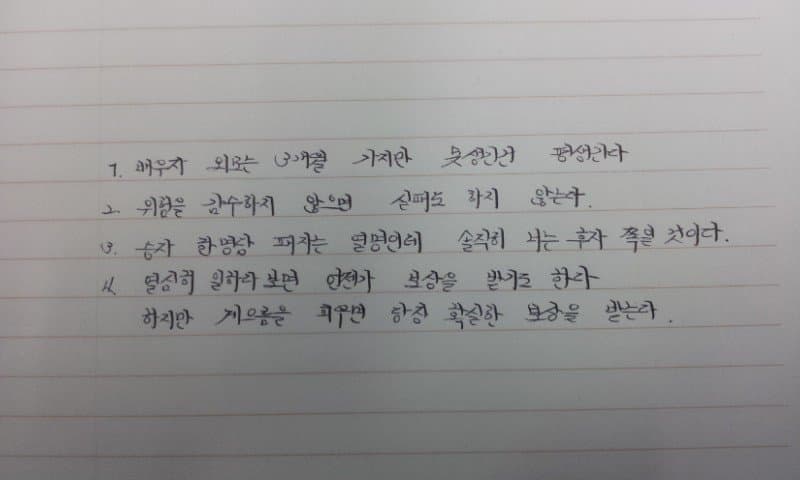 1. 배우자 외모는 3개월 가지만 못생긴건 평생간다
2. 위험을 감수하지 않으면 실패도 하지 않는다.
3. 승자 한명당 패자는 열명인데 솔직히 나는 후자 쪽일 것이다.
4. 열심히 일하다 보면 언젠가 보상을 받기도 한다
하지만 게으름을 피우면 당장 확실한 보상을 받는다.